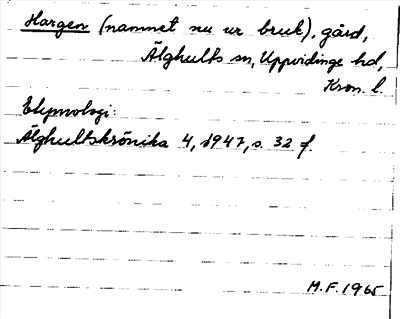 Hargen (namnet nu ur bruk), gård,
Älghults sn, Uppvidinge hd,
Kron. l.
Etymologi:
Älghultskrönika 4, 1947, s. 32 f.
M.F. 1965